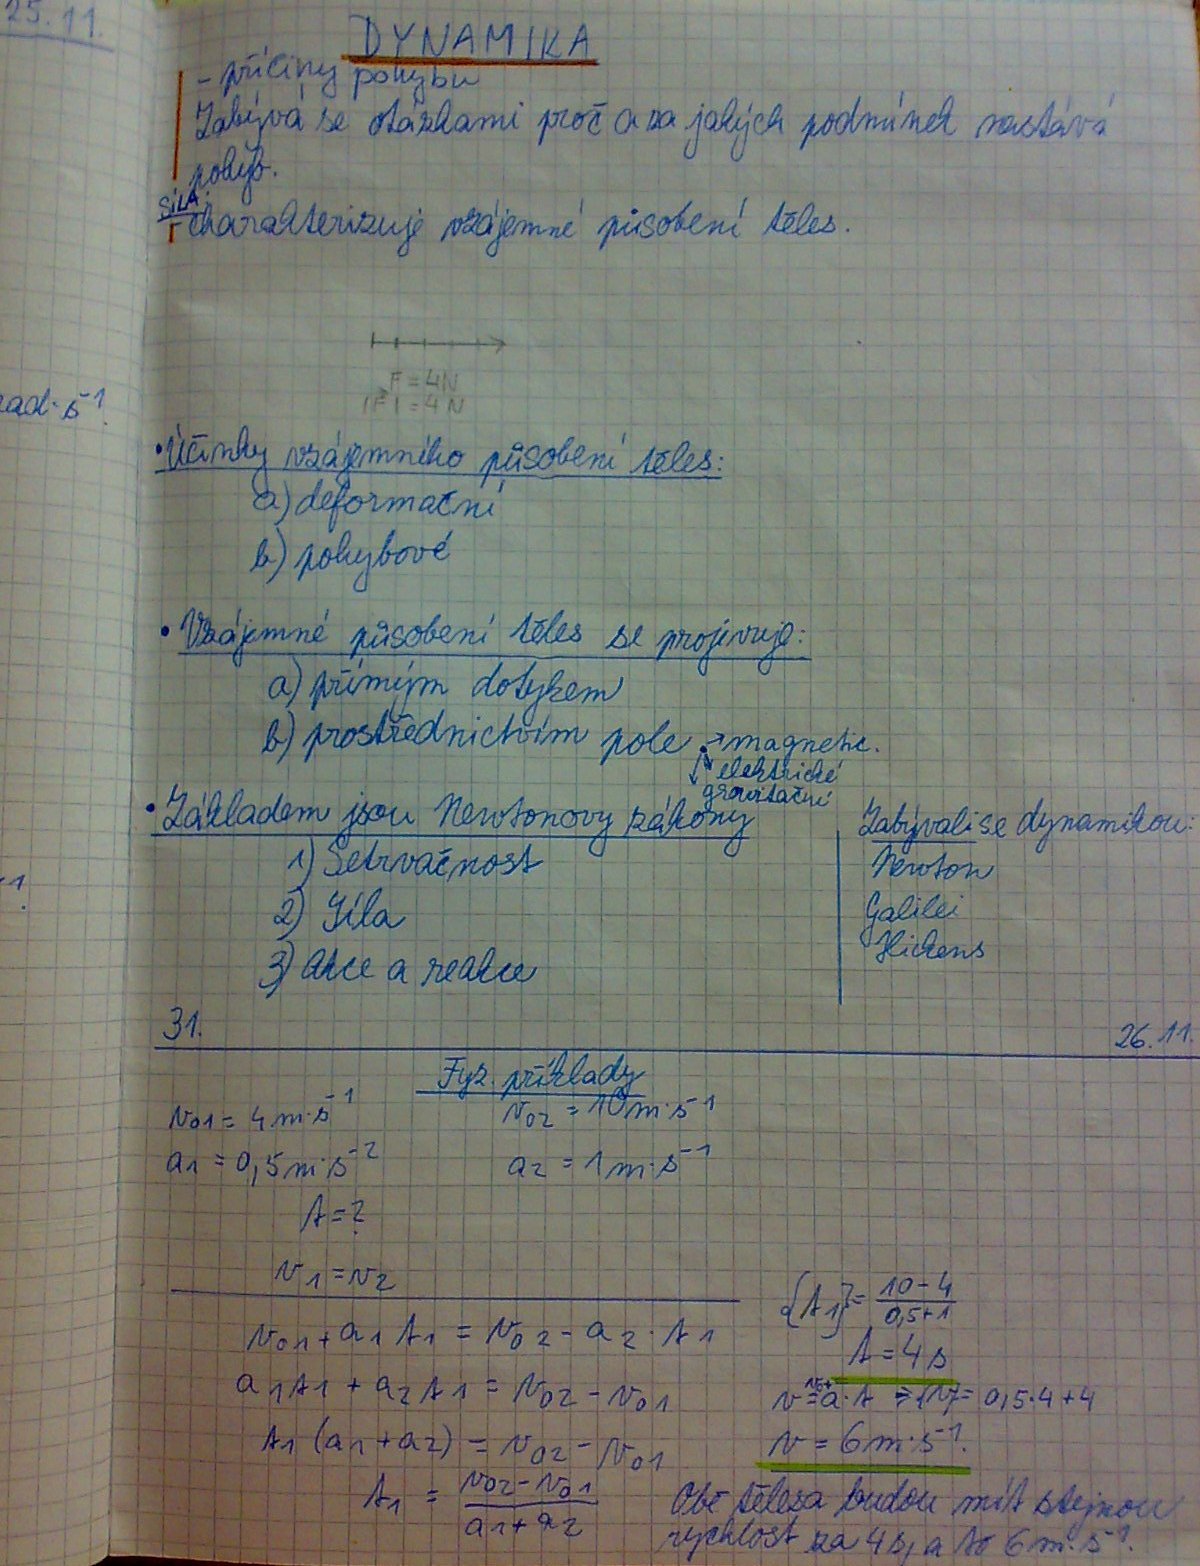 25.11.
DYNAMIKA
- příčiny pohybu
Zabývá se otázkami proč a za jakých podmínek nastává
pohyb.
SÍLA:
- charakterizuje vzájemné působení těles.
F = 4N
|F| = 4N
rad·s⁻¹
• Účinky vzájemného působení těles:
a) deformační
b) pohybové
• Vzájemné působení těles se projevuje:
a) přímým dotykem
b) prostřednictvím pole → magnetic.
elektrické
gravitační
• Základem jsou Newtonovy zákony
1) Setrvačnost
2) Síla
3) Akce a reakce
Zabývali se dynamikou:
Newton
Galilei
Hickens
31.
26.11.
Fyz. příklady
v₀₁ = 4 m·s⁻¹ v₀₂ = 10 m·s⁻¹
a₁ = 0,5 m·s⁻² a₂ = 1 m·s⁻¹
t = ?
v₁ = v₂
v₀₁ + a₁ t₁ = v₀₂ - a₂·t₁
a₁t₁ + a₂t₁ = v₀₂ - v₀₁
t₁ (a₁ + a₂) = v₀₂ - v₀₁
t₁ = (v₀₂ - v₀₁)/(a₁ + a₂)
{t₁} = (10 - 4)/(0,5 + 1)
t = 4 s
v = v₀+a·t ⇒ {v} = 0,5·4 + 4
v = 6 m·s⁻¹.
Obě tělesa budou mít stejnou
rychlost za 4 s, a to 6 m·s⁻¹.